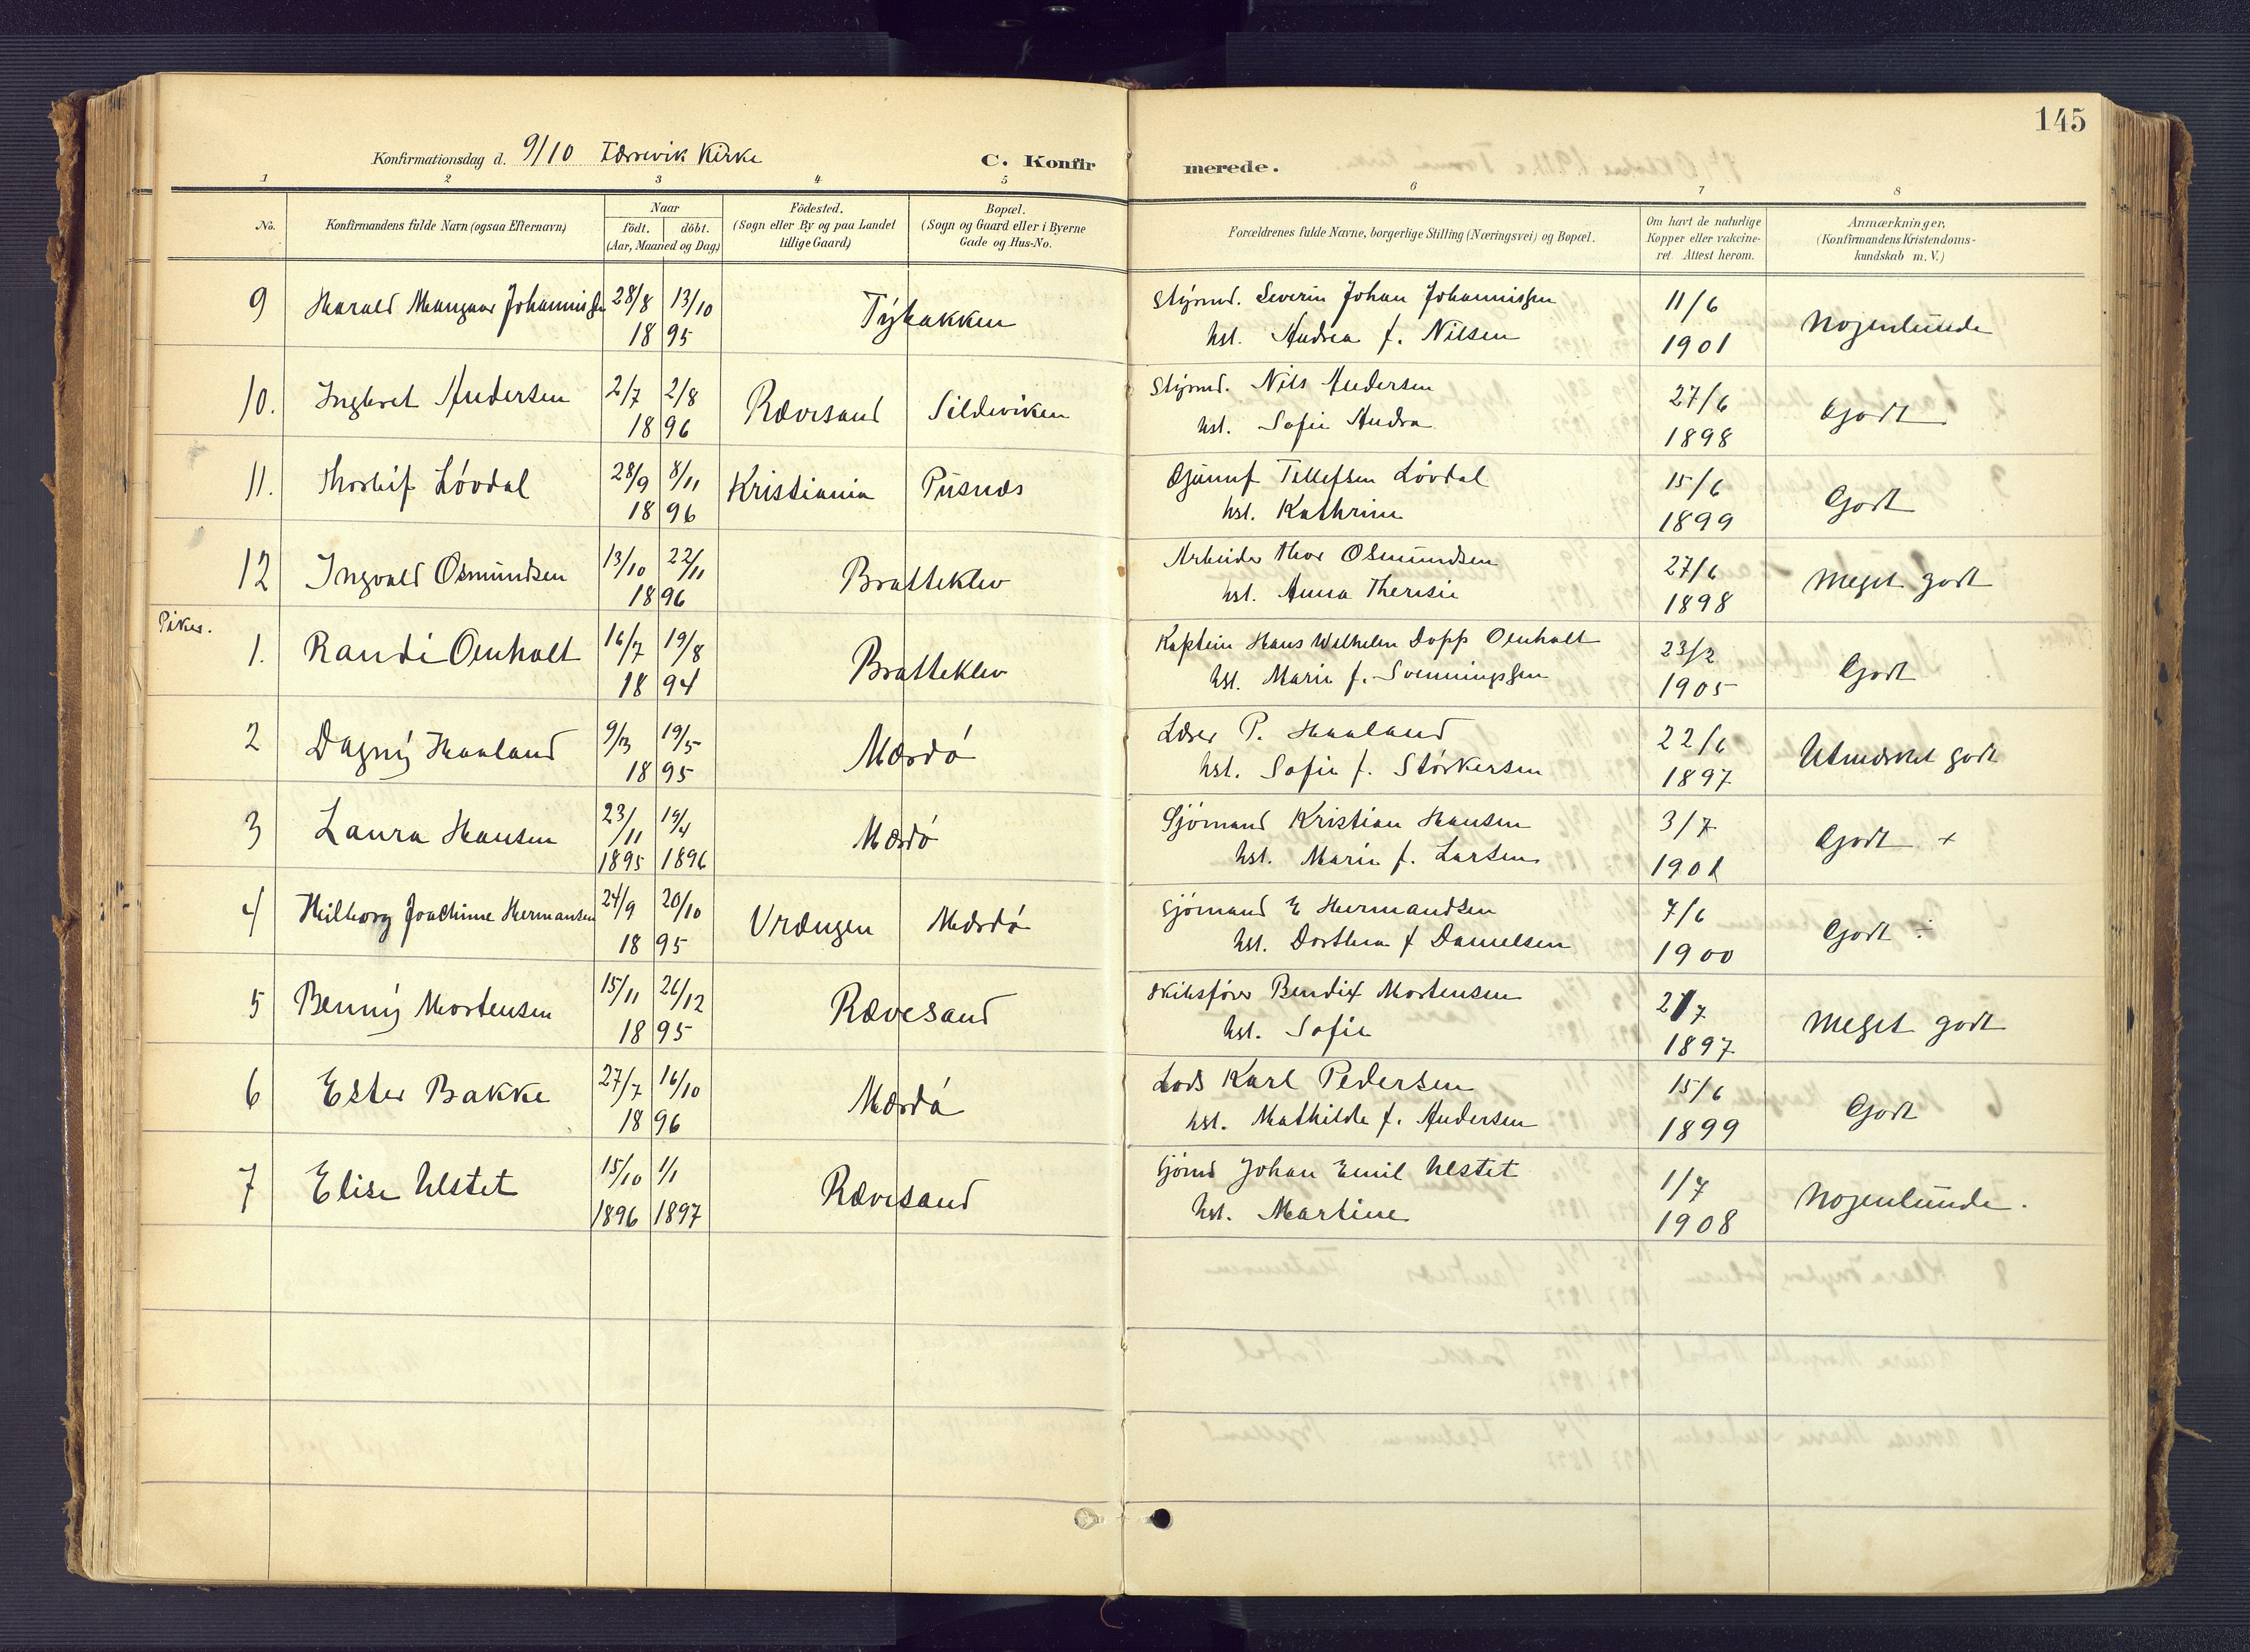 145
Konfirmationsdag d. 9/10 Færvik Kirke
C. Konfirmerede.
1 2 3 4 5 6 7 8
No.
Konfirmandens fulde Navn (ogsaa Efternavn)
Naar
født. døbt.
(Aar, Maaned og Dag)
Födested.
(Sogn eller By og paa Landet
tillige Gaard)
Bopæl.
(Sogn og Gaard eller i Byerne
Gade og Hus-No.
Forældrenes fulde Navne, borgerlige Stilling (Næringsvei) og Bopæl.
Om havt de naturlige
Kopper eller vakcine-
ret Attest herom.
Anmærkninger,
(Konfirmandens Kristendoms-
kundskab m. V.)
9 Harald Johannissen 28/8 13/10 Tybakken Styrmd. Severin Johan Johannissen 11/6 Nogenlunde
18 95 hst. Andrea f. Nilsen 1901
10. Ingbret Andersen 2/7 2/8 Rævesand Sildeviken Styrmd. Nils Andersen 27/6 Godt
18 96 hst. Sofie Andra 1898
11. Thorleif Lövdal 28/9 8/11 Kristiania Pusnæs Gjunuf Tellefsen Lövdal 15/6 Godt
18 96 hst. Kathrine 1899
12 Ingvald Osmundsen 13/10 22/11 Bratteklev Arbeider Thor Osmundsen 27/6 Meget godt
18 96 hst. Anna Theresie 1898
Piker.
1. Randi Omholt 16/7 19/8 Bratteklev Kaptein Hans Wilhelm Dopp Omholt 23/2 Godt
18 94 hst. Marie f. Svenningssen 1905
2 Dagny Haaland 9/3 19/5 Mærdö Lærer P. Haaland 22/6 Utmærket godt
18 95 hst. Sofie f. Störkersen 1897
3 Laura Hansen 23/11 19/4 Mærdö Sjömand Kristian Hansen 3/7 Godt +
1895 1896 hst. Marie f. Larsen 1901
4 Hilborg Joachime Hermansen 24/9 20/10 Vrængen Mærdö Sjömand E Hermandsen 7/6 Godt ÷
18 95 hst. Dorthea f Danielsen 1900
5 Benny Mortensen 15/11 26/12 Rævesand Skibsförer Bendix Mortensen 2/7 Meget godt
18 95 hst. Sofie 1897
6 Ester Bakke 27/7 16/10 Mærdö Lods Karl Pedersen 15/6 Godt
18 96 hst. Mathilde f. Andersen 1899
7 Elise Ulstet 15/10 1/1 Rævesand Sjömd Johan Emil Ulstet 1/7 Nogenlunde.
1896 1897 hst. Martine 1908